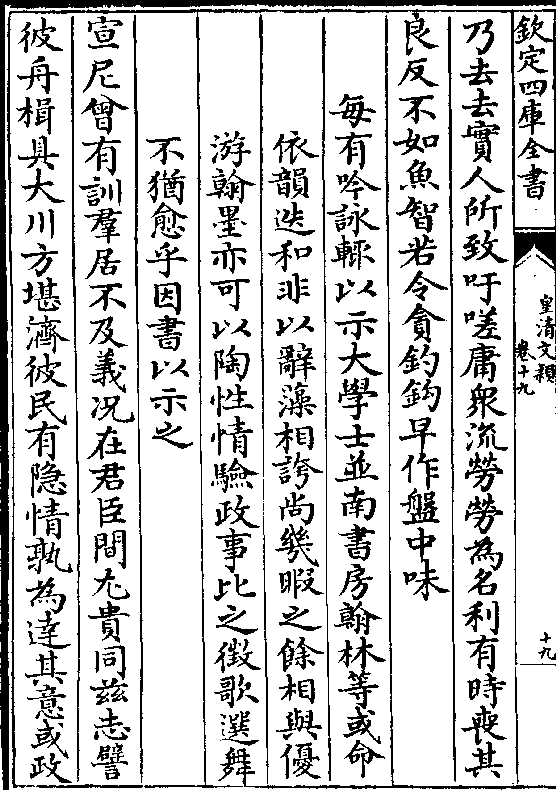 欽定四庫全書
皇清文穎
卷十九
十九
乃去去實人所致吁嗟庸衆流勞勞為名利有時喪其
良反不如魚智若令貪釣鈎早作盤中味
每有吟詠輒以示大學士並南書房翰林等或命
依韻迭和非以辭藻相誇尚幾暇之餘相與優
游翰墨亦可以陶性情驗政事比之徵歌選舞
不猶愈乎因書以示之
宣尼曾有訓羣居不及義况在君臣間尤貴同兹志譬
彼舟楫具大川方堪濟彼民有隐情孰為達其意或政